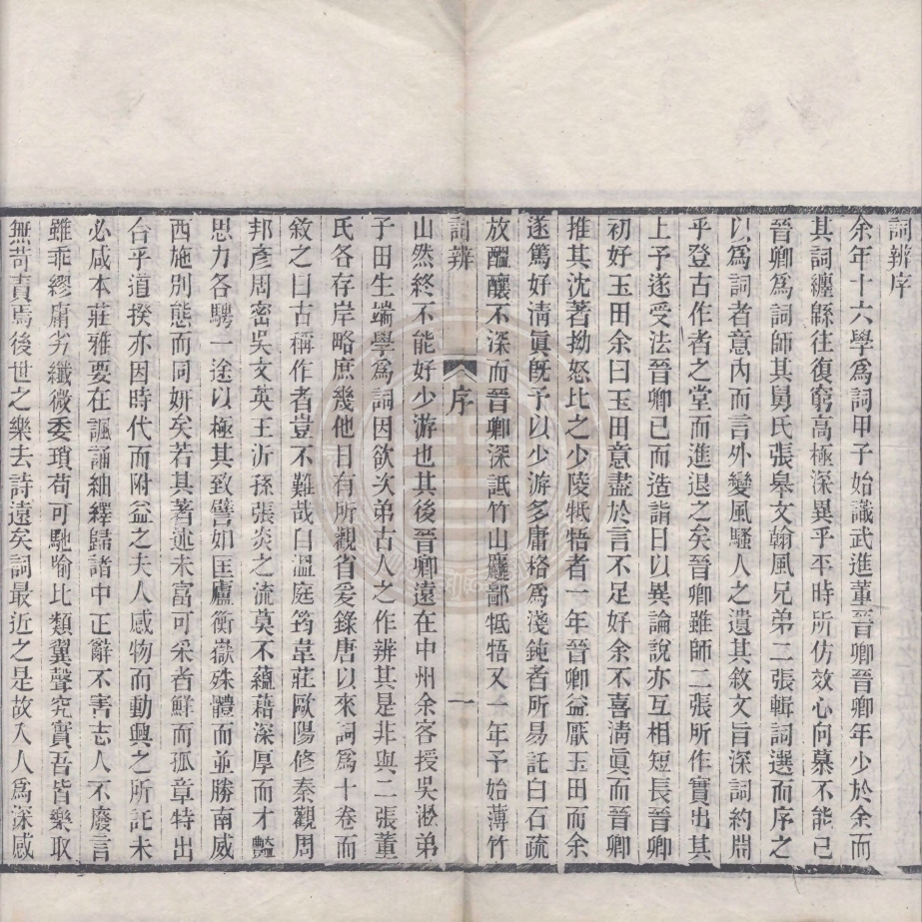 詞辨序
余年十六學爲詞甲子始識武進董晉卿晉卿年少於余而
其詞纏緜往復窮高極深異乎平時所仿效心向慕不能已
晉卿爲詞師其舅氏張臯文翰風兄弟二張輯詞選而序之
以爲詞者意內而言外變風騷人之遺其敘文旨深詞約淵
乎登古作者之堂而進退之矣晉卿雖師二張所作實出其
上予遂受法晉卿已而造詣日以異論說亦互相短長晉卿
初好玉田余曰玉田意盡於言不足好余不喜淸眞而晉卿
推其沈著拗怒比之少陵牴牾者一年晉卿益厭玉田而余
遂篤好淸眞旣予以少游多庸格爲淺鈍者所易託白石疏
放醞釀不深而晉卿深詆竹山麤鄙牴牾又一年予始薄竹
詞辨
序
一
山然終不能好少游也其後晉卿遠在中州余客授吳淞弟
子田生端學爲詞因欲次弟古人之作辨其是非與二張董
氏各存岸略庶幾他日有所觀省爰錄唐以來詞爲十卷而
敘之曰古稱作者豈不難哉自溫庭筠韋莊歐陽修秦觀周
邦彥周密吳文英王沂孫張炎之流莫不蘊藉深厚而才豔
思力各騁一途以極其致譬如匡廬衡嶽殊體而並勝南威
西施別態而同妍矣若其著述未富可采者鮮而孤章特出
合乎道揆亦因時代而附益之夫人感物而動興之所託未
必咸本莊雅要在諷誦紬繹歸諸中正辭不害志人不廢言
雖乖繆庸劣纖微委瑣苟可馳喻比類翼聲究實吾皆樂取
無苛責焉後世之樂去詩遠矣詞最近之是故入人爲深感